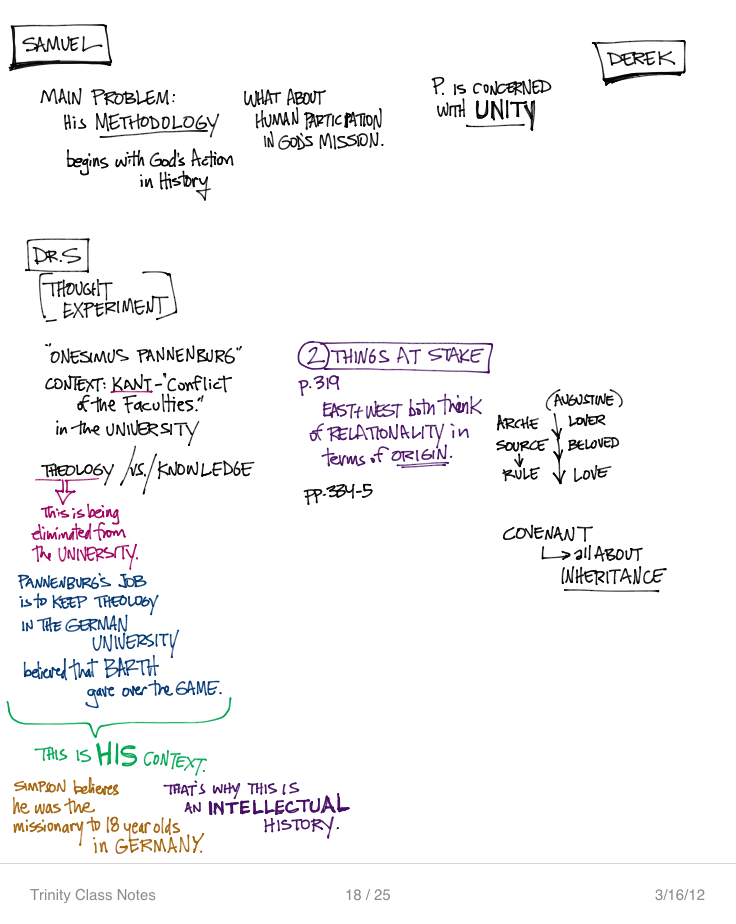 SAMUEL
MAIN PROBLEM:
His METHODOLOGY
begins with God's Action
in History
WHAT ABOUT
HUMAN PARTICIPATION
IN GOD'S MISSION.
DEREK
P. IS CONCERNED
WITH UNITY
DR. S
[THOUGHT
EXPERIMENT]
"ONESIMUS PANNENBURG"
CONTEXT: KANT - "Conflict
of the Faculties."
in the UNIVERSITY
THEOLOGY /VS./ KNOWLEDGE
This is being
eliminated from
the UNIVERSITY.
PANNENBURG'S JOB
is to KEEP THEOLOGY
IN THE GERMAN
UNIVERSITY
believed that BARTH
gave over the GAME.
THIS IS HIS CONTEXT.
SIMPSON believes
he was the
missionary to 18 year olds
in GERMANY.
THAT'S WHY THIS IS
AN INTELLECTUAL
HISTORY.
2 THINGS AT STAKE
p. 319
EAST + WEST both think
of RELATIONALITY in
terms of ORIGIN.
PP. 334-5
(AUGUSTINE)
ARCHE ↓ LOVER
SOURCE ↓ BELOVED
↓
RULE ↓ LOVE
COVENANT
↳ all ABOUT
INHERITANCE
Trinity Class Notes
18 / 25
3/16/12